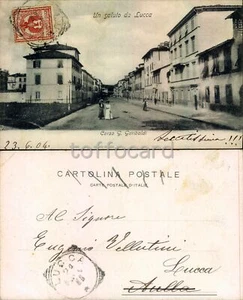 Un saluto da Lucca
Corso G. Garibaldi
23.6.04
toffocard
CARTOLINA POSTALE
(CARTE POSTALE D'ITALIE)
Al Signore
Eugenio Vellutini
Lucca
Aulla